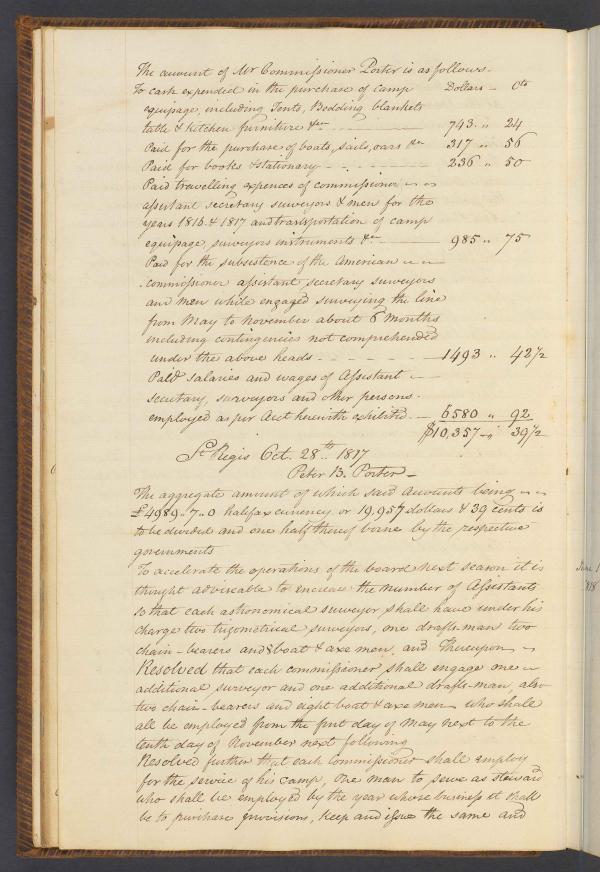 The amount of Mr Commissioner Porter is as follows.
To cash expended in the purchase of camp Dollars - Cts
equipage, including Tents, Bedding blankets
table & kitchen furniture &c 743 " 24
Paid for the purchase of boats, sails, oars &c 317 " 56
Paid for books & stationary 236 " 50
Paid travelling expences of commissioner
assistant secretary surveyors & men for the
years 1816 & 1817 and transportation of camp
equipage, surveyors instruments &c 985 " 75
Paid for the subsistence of the American
commissioner assistant secretary surveyors
and men while engaged surveying the line
from May to November about 6 months
including contingencies not comprehended
under the above heads 1493 " 42½
Paid salaries and wages of Assistant
secretary, surveyors and other persons
employed as pr Acct herewith exhibited. 6580 " 92
$10,357 " 39½
St Regis Oct. 28th 1817
Peter B. Porter
The aggregate amount of which said accounts being
£4989 " 7 " 0 halifax currency or 19,957 dollars & 39 cents is
to be divided and one half thereof borne by the respective
governments
To accelerate the operations of the board next season it is
thought adviseable to increase the number of Assistants
so that each astronomical surveyor shall have under his
charge two trigometrical surveyors, one drafts-man two
chain-bearers and 8 boat & axe men, and Thereupon
Resolved that each commissioner shall engage one
additional surveyor and one additional drafts-man, also
two chain-bearers and eight boat & axe men who shall
all be employed from the first day of May next to the
tenth day of November next following
Resolved further that each Commissioner shall employ
for the service of his camp, one man to serve as steward
who shall be employed by the year whose business it shall
be to purchase provisions, keep and issue the same and
June 1